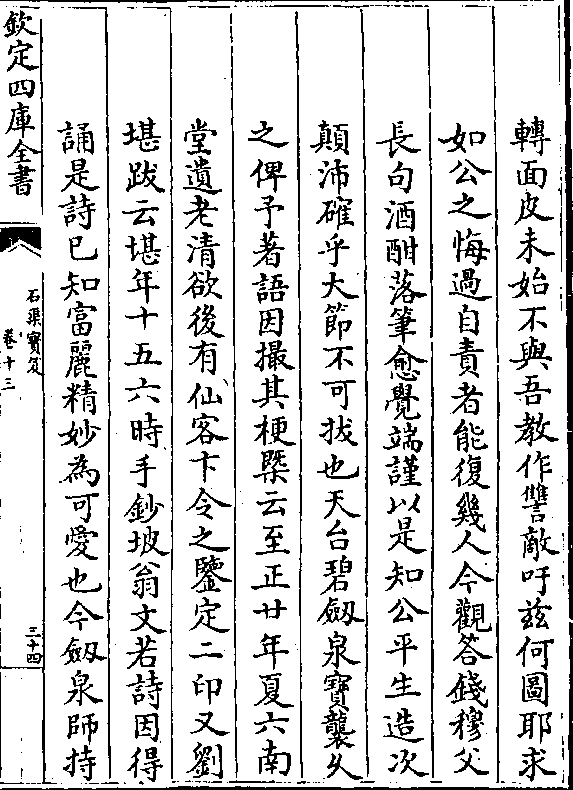 轉面皮未始不與吾教作讐敵吁茲何圖耶求
如公之悔過自責者能復幾人今觀答錢穆父
長句酒酣落筆愈覺端謹以是知公平生造次
顛沛確乎大節不可拔也天台碧劔泉寶襲久
之俾予著語因撮其梗槩云至正廿年夏六南
堂遺老清欲後有仙客卞令之鑒定二印又劉
堪跋云堪年十五六時手鈔坡翁文若詩因得
誦是詩已知富麗精妙為可愛也今劔泉師持
欽定四庫全書
石渠寶笈
卷十三
三十四